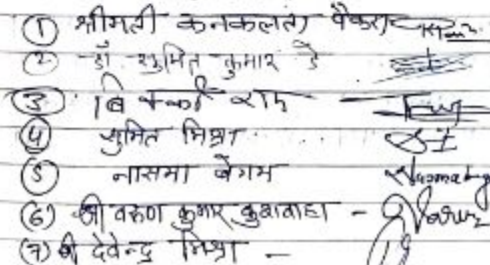 ① श्रीमती कनकलता पैकरा
② डॉ. सुमित कुमार डे
③ विक्की राम
④ सुमित मिश्रा
⑤ नासमा बेगम
(6) श्री वरुण कुमार कुशवाहा -
(7) श्री देवेन्द्र मिश्रा -